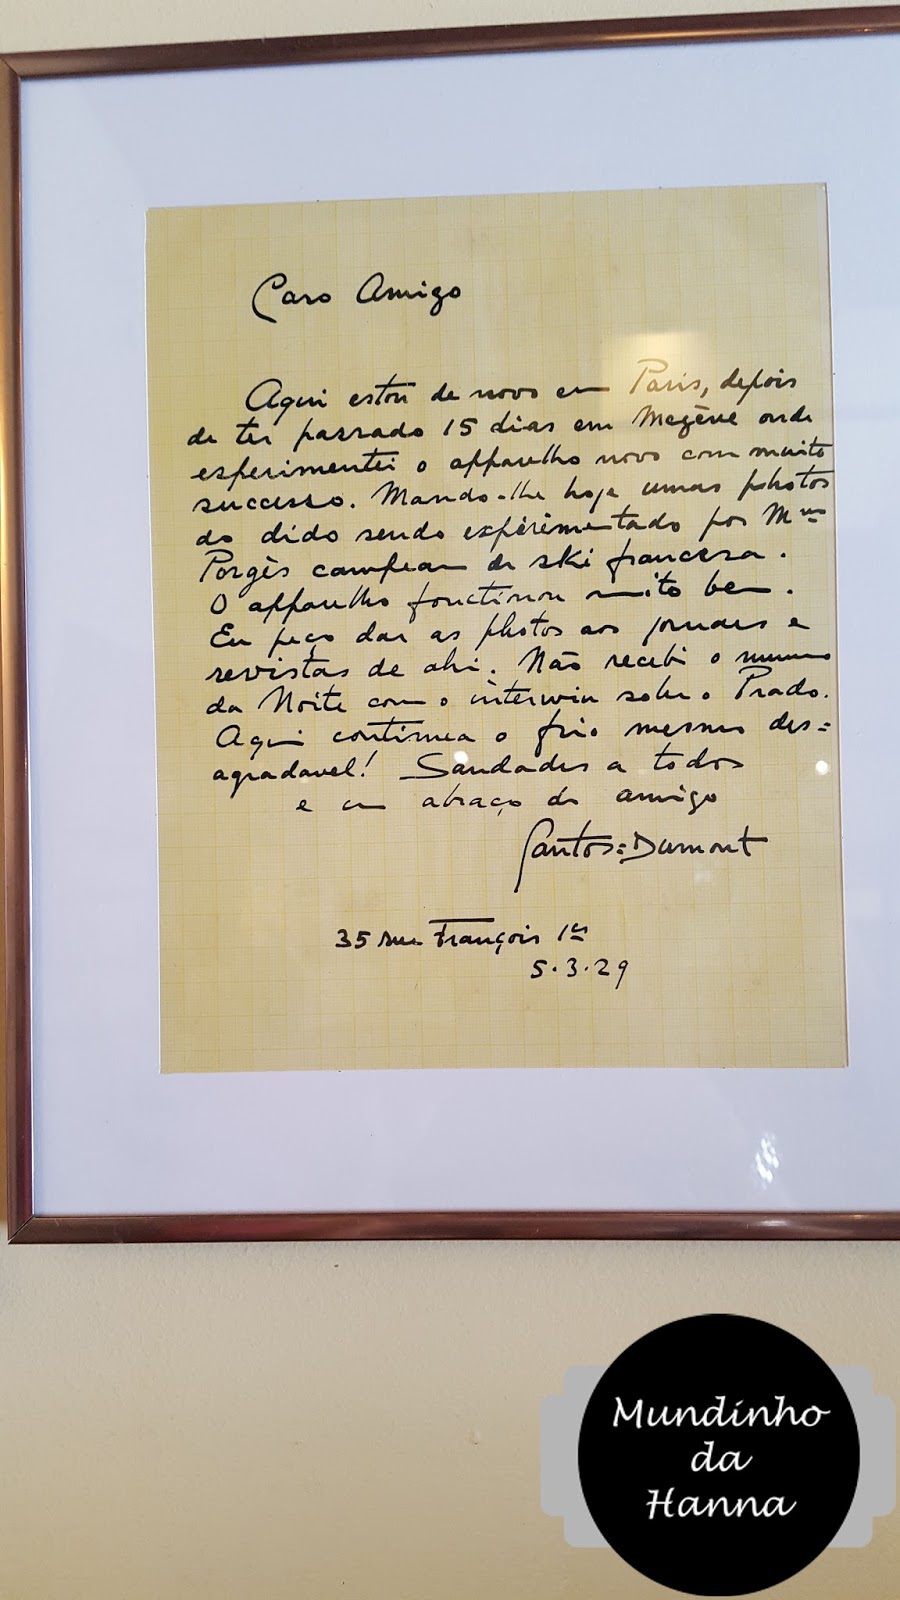 Caro Amigo
Aqui estou de novo em Paris, depois
de ter passado 15 dias em Megève onde
esperimentei o apparelho novo com muito
successo. Mando-lhe hoje umas photos
do dido sendo espérimentado por Mme
Porgès campeam de ski francesa.
O apparelho fonctionou muito bem.
Eu peço dar as photos aos jornaes e
revistas de ahi. Não recebi o numero
da Noite com o interwiu sobre o Prado.
Aqui continua o frio mesmo des=
agradavel! Saudades a todos
e um abraço do amigo
Santos=Dumont
35 rue François 1er
5.3.29
Mundinho
da
Hanna